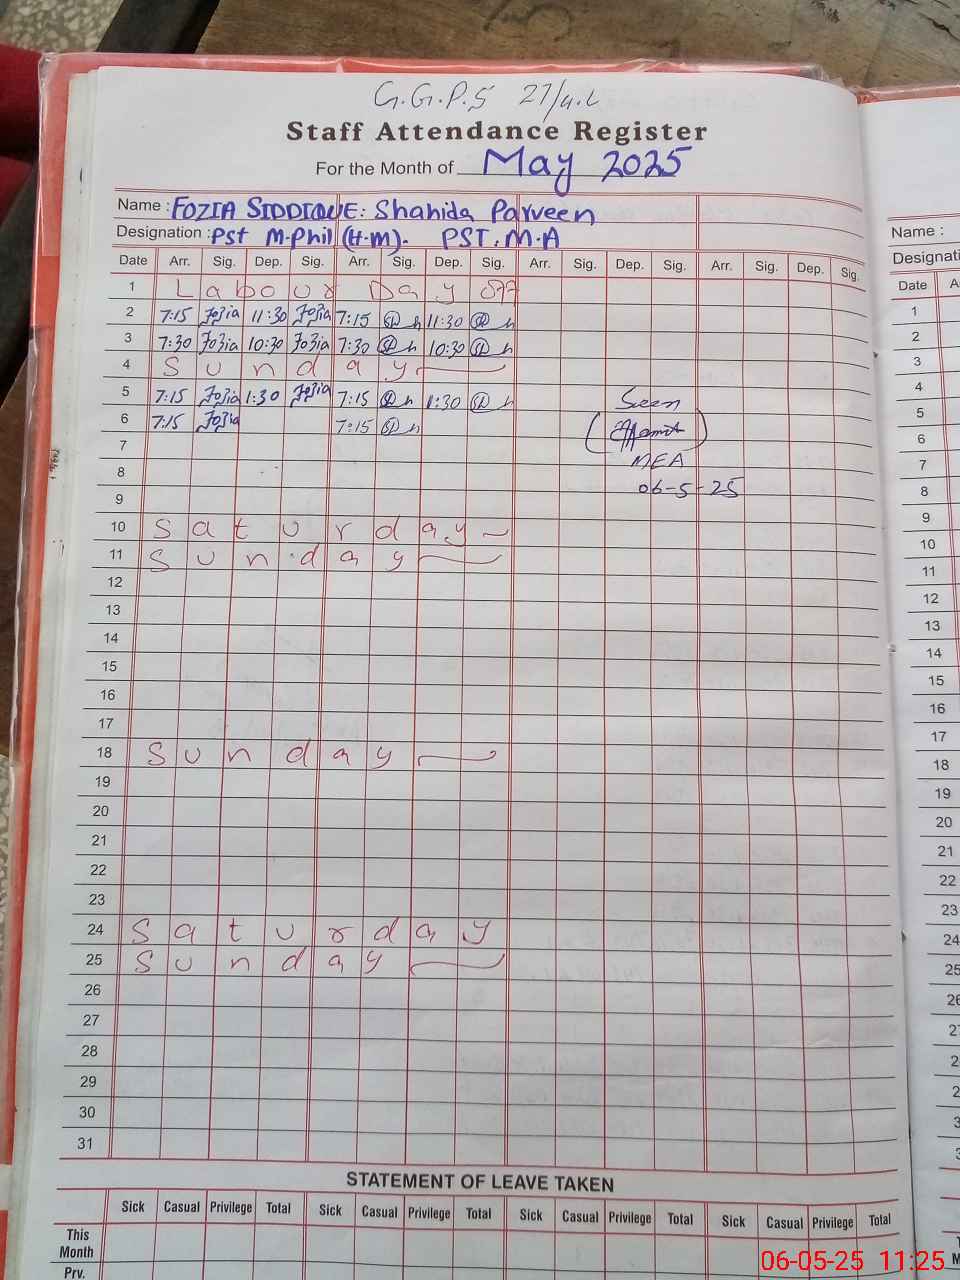 G.G.P.S 27/4.L
Staff Attendance Register
For the Month of May 2025
Name : FOZIA SIDDIQUE: Shahida Parveen
Designation : PST M.Phil (H.M). PST. M.A
Date Arr. Sig. Dep. Sig. Arr. Sig. Dep. Sig. Arr. Sig. Dep. Sig. Arr. Sig. Dep. Sig.
1 Labour Day Off
2 7:15 Fozia 11:30 Fozia 7:15 11:30
3 7:30 Fozia 10:30 Fozia 7:30 10:30
4 Sunday
5 7:15 Fozia 1:30 Fozia 7:15 1:30 Seen
6 7:15 Fozia 7:15
7 MEA
8 06-5-25
9
10 Saturday
11 Sunday
12
13
14
15
16
17
18 Sunday
19
20
21
22
23
24 Saturday
25 Sunday
26
27
28
29
30
31
STATEMENT OF LEAVE TAKEN
Sick Casual Privilege Total Sick Casual Privilege Total Sick Casual Privilege Total Sick Casual Privilege Total
This Month
Prv.
Name :
Date
1
2
3
4
5
6
7
8
9
10
11
12
13
14
15
16
17
18
19
20
21
22
23
24
25
06-05-25 11:25